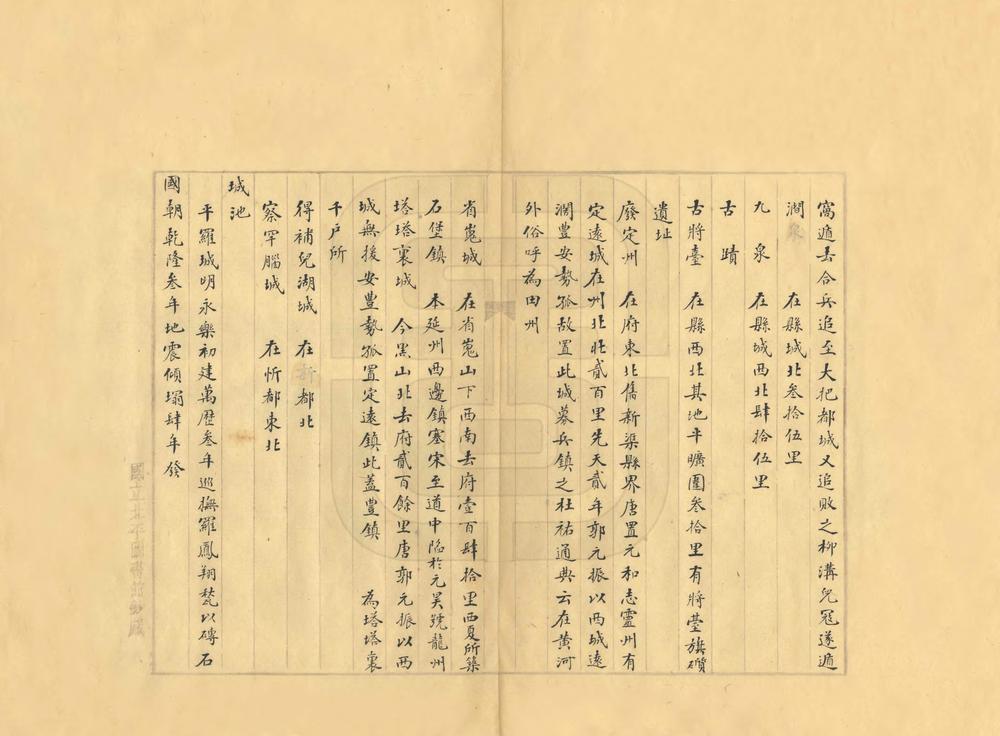 窩遁去合兵追至大把都城又追敗之柳溝兒冦遂遁
澗泉　在縣城北叁拾伍里
九泉　在縣城西北肆拾伍里
古蹟
古將臺　在縣西北其池平曠圍叁拾里有將臺旗礩
遺址
廢定州　在府東北舊新渠縣界唐置元和志靈州有
定遠城在州北貳百里先天貳年郭元振以西城遠
濶豐安勢孤故置此城募兵鎮之杜祐通典云在黄河
外俗呼為田州
省嵬城　在省嵬山下西南去府壹百肆拾里西夏所築
石堡鎮　本延州西邊鎮塞宋至道中陷於元昊號龍州
塔塔裏城　今黑山北去府貳百餘里唐郭元振以西
城無援安豐勢孤置定遠鎮此蓋豐鎮　為塔塔裏
千戸所
得補兒湖城　在新都北
察罕腦城　在忻都東北
城池
平羅城明永樂初建萬歷叁年巡撫羅鳳翔甃以磚石
國朝乾隆叁年地震傾塌肆年發
國立北平圖書館藏